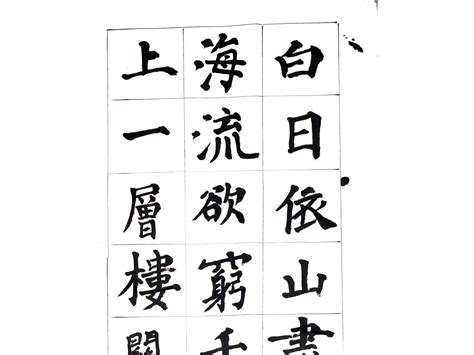 白日依山
海流欲窮
上一層樓